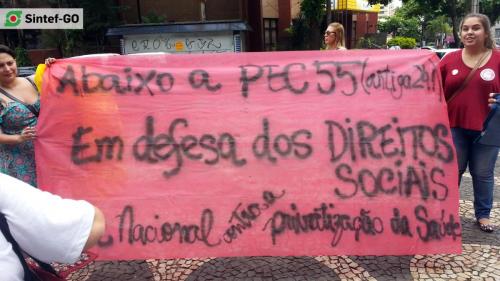 Sintef-GO
Abaixo a PEC 55 (antiga 241)
Em defesa dos DIREITOS
SOCIAIS
Nacional contra a privatização da Saúde